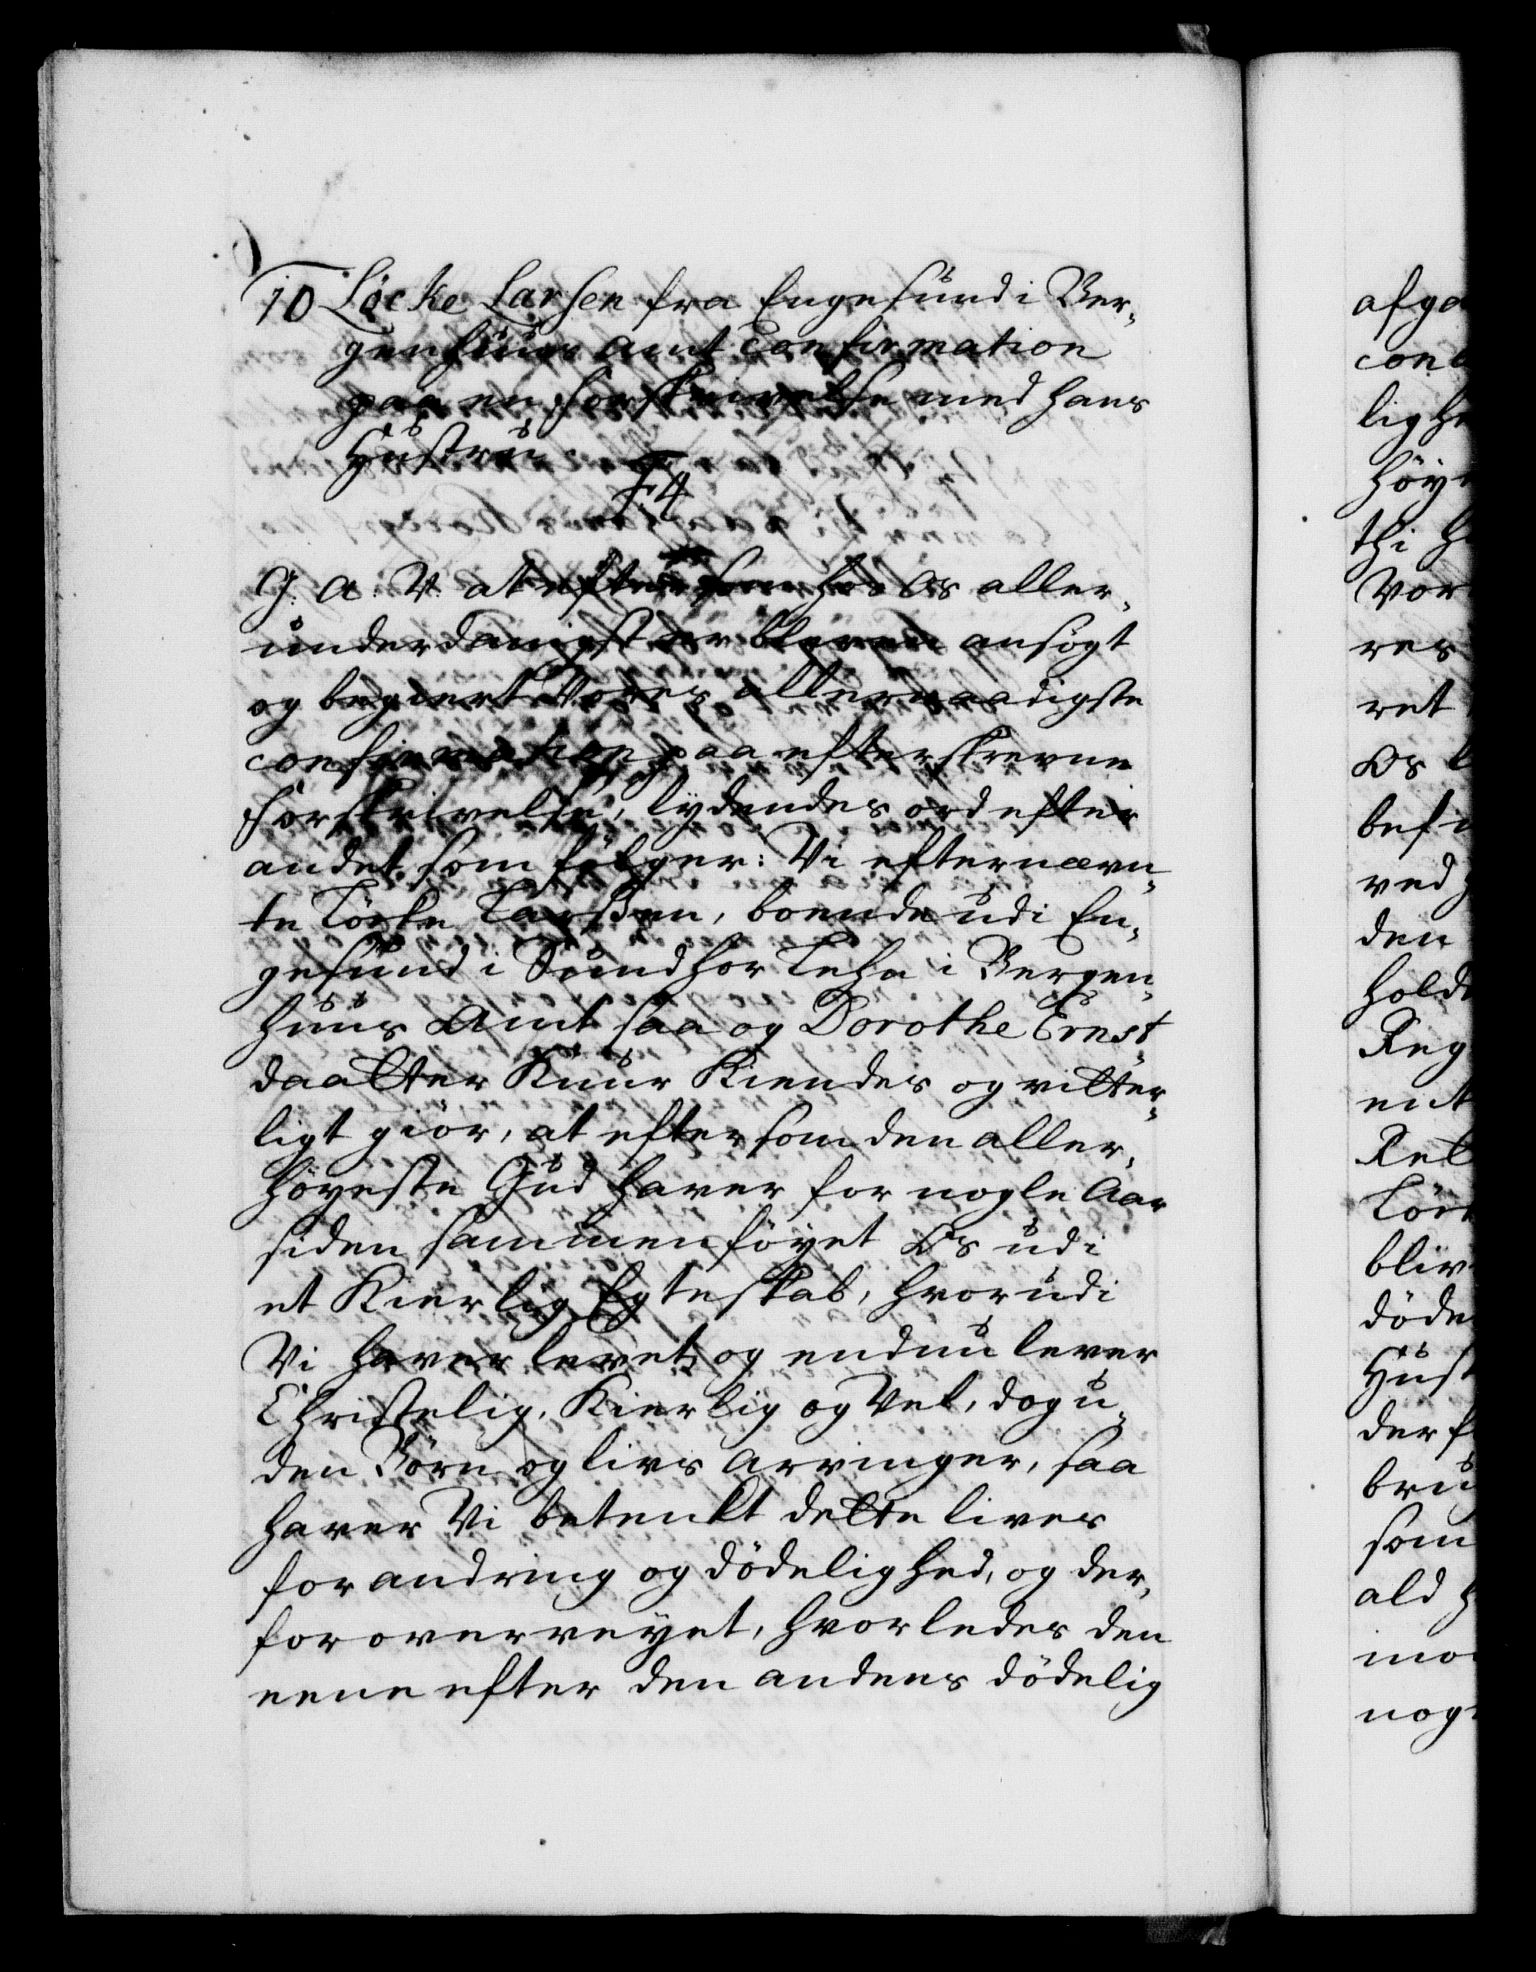 10 Löcke Larsen fra Engesund i Ber,
genhuus Amt Confirmation
paa en forskrivelse med hans
Hustru.
F 4
G. A. V. at eftersom hos Os aller,
underdanigst er bleven ansögt
og begiert Vores allernaadigste
confirmation paa efterskrevne
forskrivelse, lydendes ord efter
andet som fölger: Vi efternævn,
te Törke Larssen, boende udi En,
gesund i Sundhor Lehn i Bergen,
huus Amt saa og Dorothe Ernst
daatter Kuur Kiendes og vitter,
ligt giör, at eftersom den aller,
höyeste Gud haver for nogle Aar
siden sammenföyet Os udi
et Kierlig Egteskab, hvorudi
Vi haver levet og endnu lever
Christelig, Kierlig og Vel, dog u,
den Börn og livs Arvinger, saa
haver Vi betenkt dette lives
forandring og dödelighed, og der,
for overveyet, hvorledes den
eene efter den andens dödelig
afga
con
lig he
höy
thi h
Vor
res
ret
Os
bef
ved
den
hold
Reg
ent
Ret
Tör
bliv
döde
Hust
der f
bru
som
ald h
mo
nog